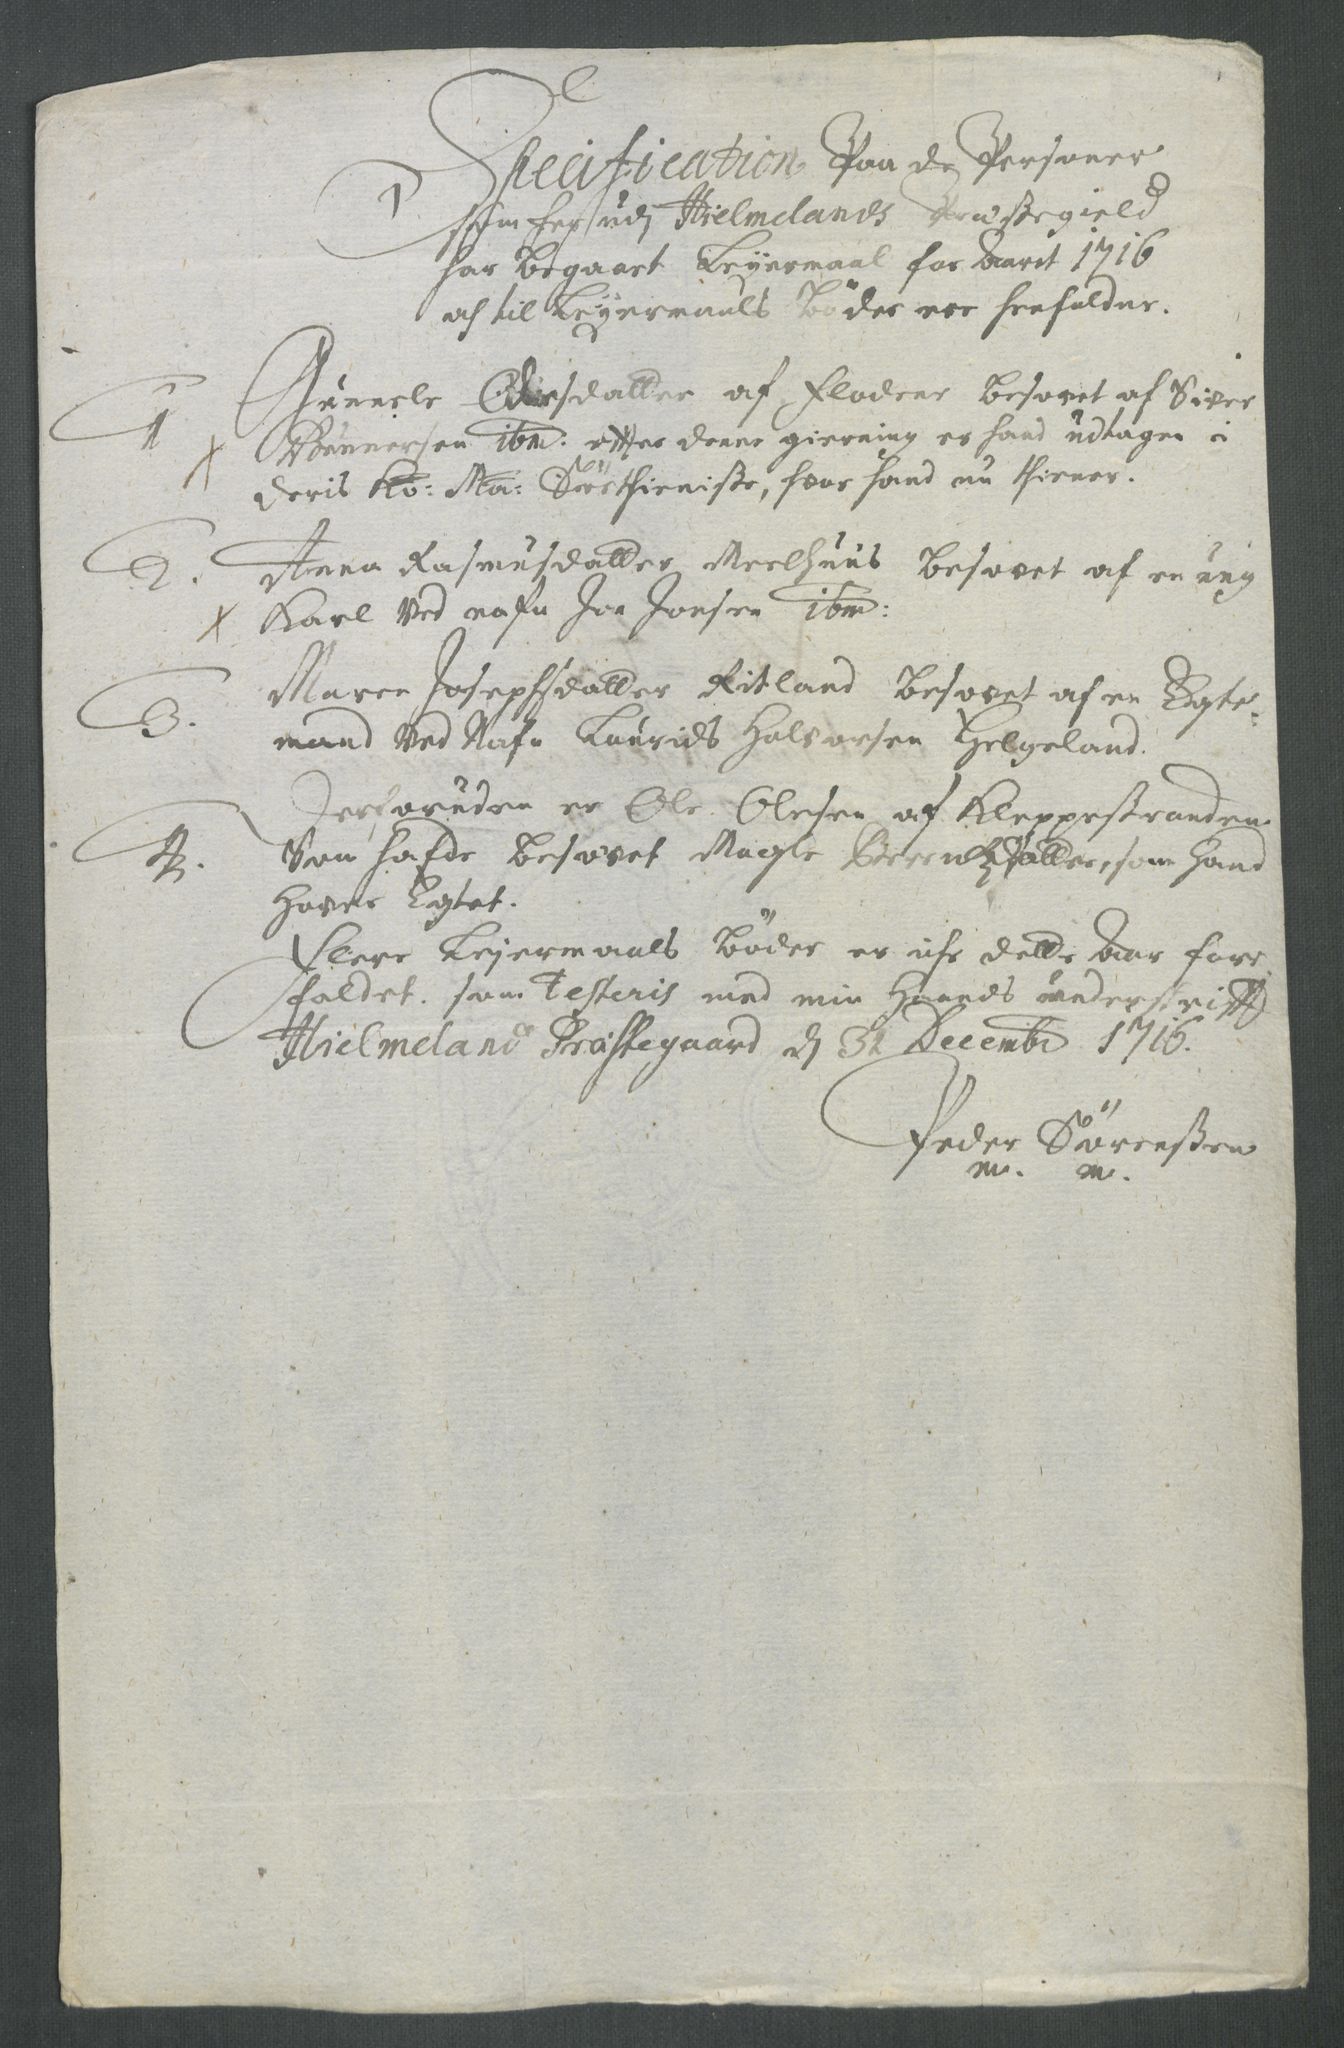 Specification Paa de Personer
som her udj Hielmelands Præstegield
har begaaet Leyermaal for Aaret 1716
och til Leyermaals Böder ere henfaldne.
1 Gunnele datter af Floderne besovet af Siver
Gunnersen ibm. efter denne gierning er hand udtagen i
deris Ko: Ma: Söe thieniste, hvor hand nu thiener.
2. Anna Rasmusdatter Meelhuus besovet af en ung
Karl ved nafn Jon Jonsen ibm:
3. Maren Josephsdatter Ritland besovet af en Egte-
mand ved Nafn Laurids Halvorsen Helgeland.
Derforuden er Ole Olesen af Kleppestranden
4. Som hafde besovet Magle datter, som hand
haver Egtet.
Flere Leyermaals Böder er iche dette Aar fore
faldet. som Testeris med min Haands underskrifft
Hielmeland Præstegaard d 31 Decembr 1716.
Peder Sörensen
m. m.